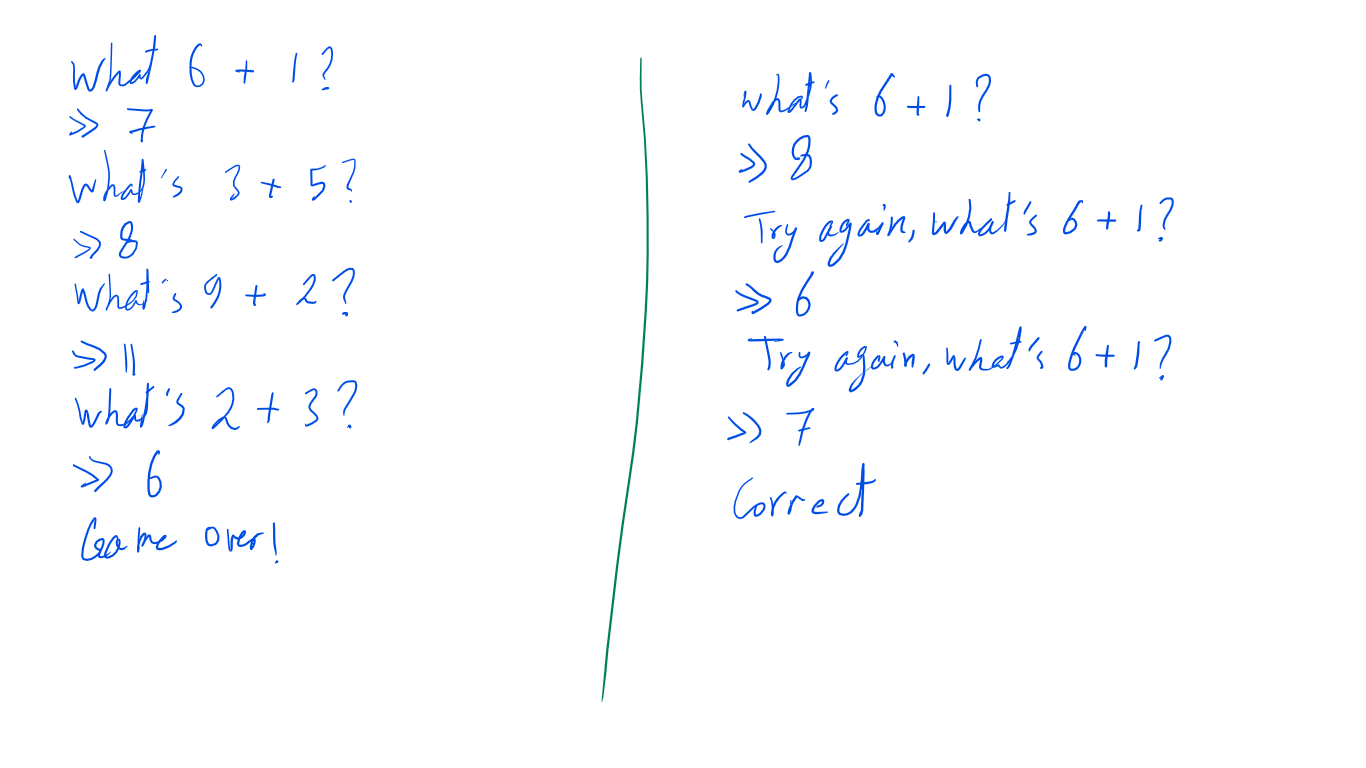 What 6 + 1?
>> 7
What's 3 + 5?
>> 8
What's 9 + 2?
>> 11
What's 2 + 3?
>> 6
Game over!
What's 6 + 1?
>> 8
Try again, what's 6 + 1?
>> 6
Try again, what's 6 + 1?
>> 7
Correct